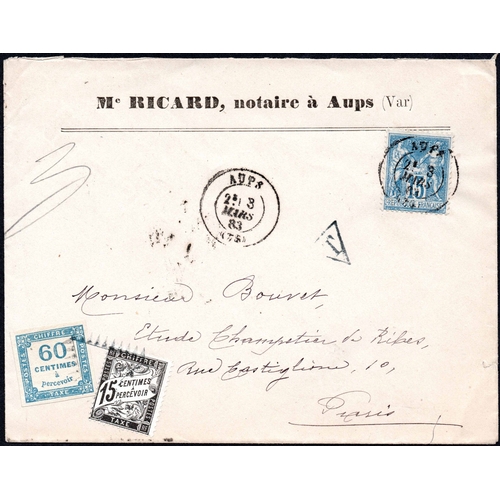 Me RICARD, notaire à Aups (Var)
AUPS
MARS
83
AUPS
MARS
T
Monsieur Bouvet
Etude Champetier de Ribes,
Rue Castiglione, 10,
Paris
3
CHIFFRE
POSTES
60
CENTIMES
à
Percevoir
TAXE
CHIFFRE
15 CENTIMES
À
PERCEVOIR
TAXE